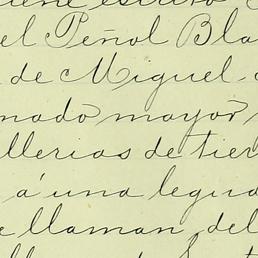 el Peñol Bla
de Miguel
nado mayor
llerias de tier
á una legua
e llaman del